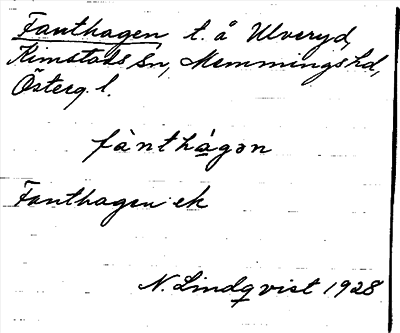 Fanthagen t. å Ulveryd,
Kimstads sn, Memmings hd,
Österg. l.
fànthágən
Fanthagen ek
N. Lindqvist 1928